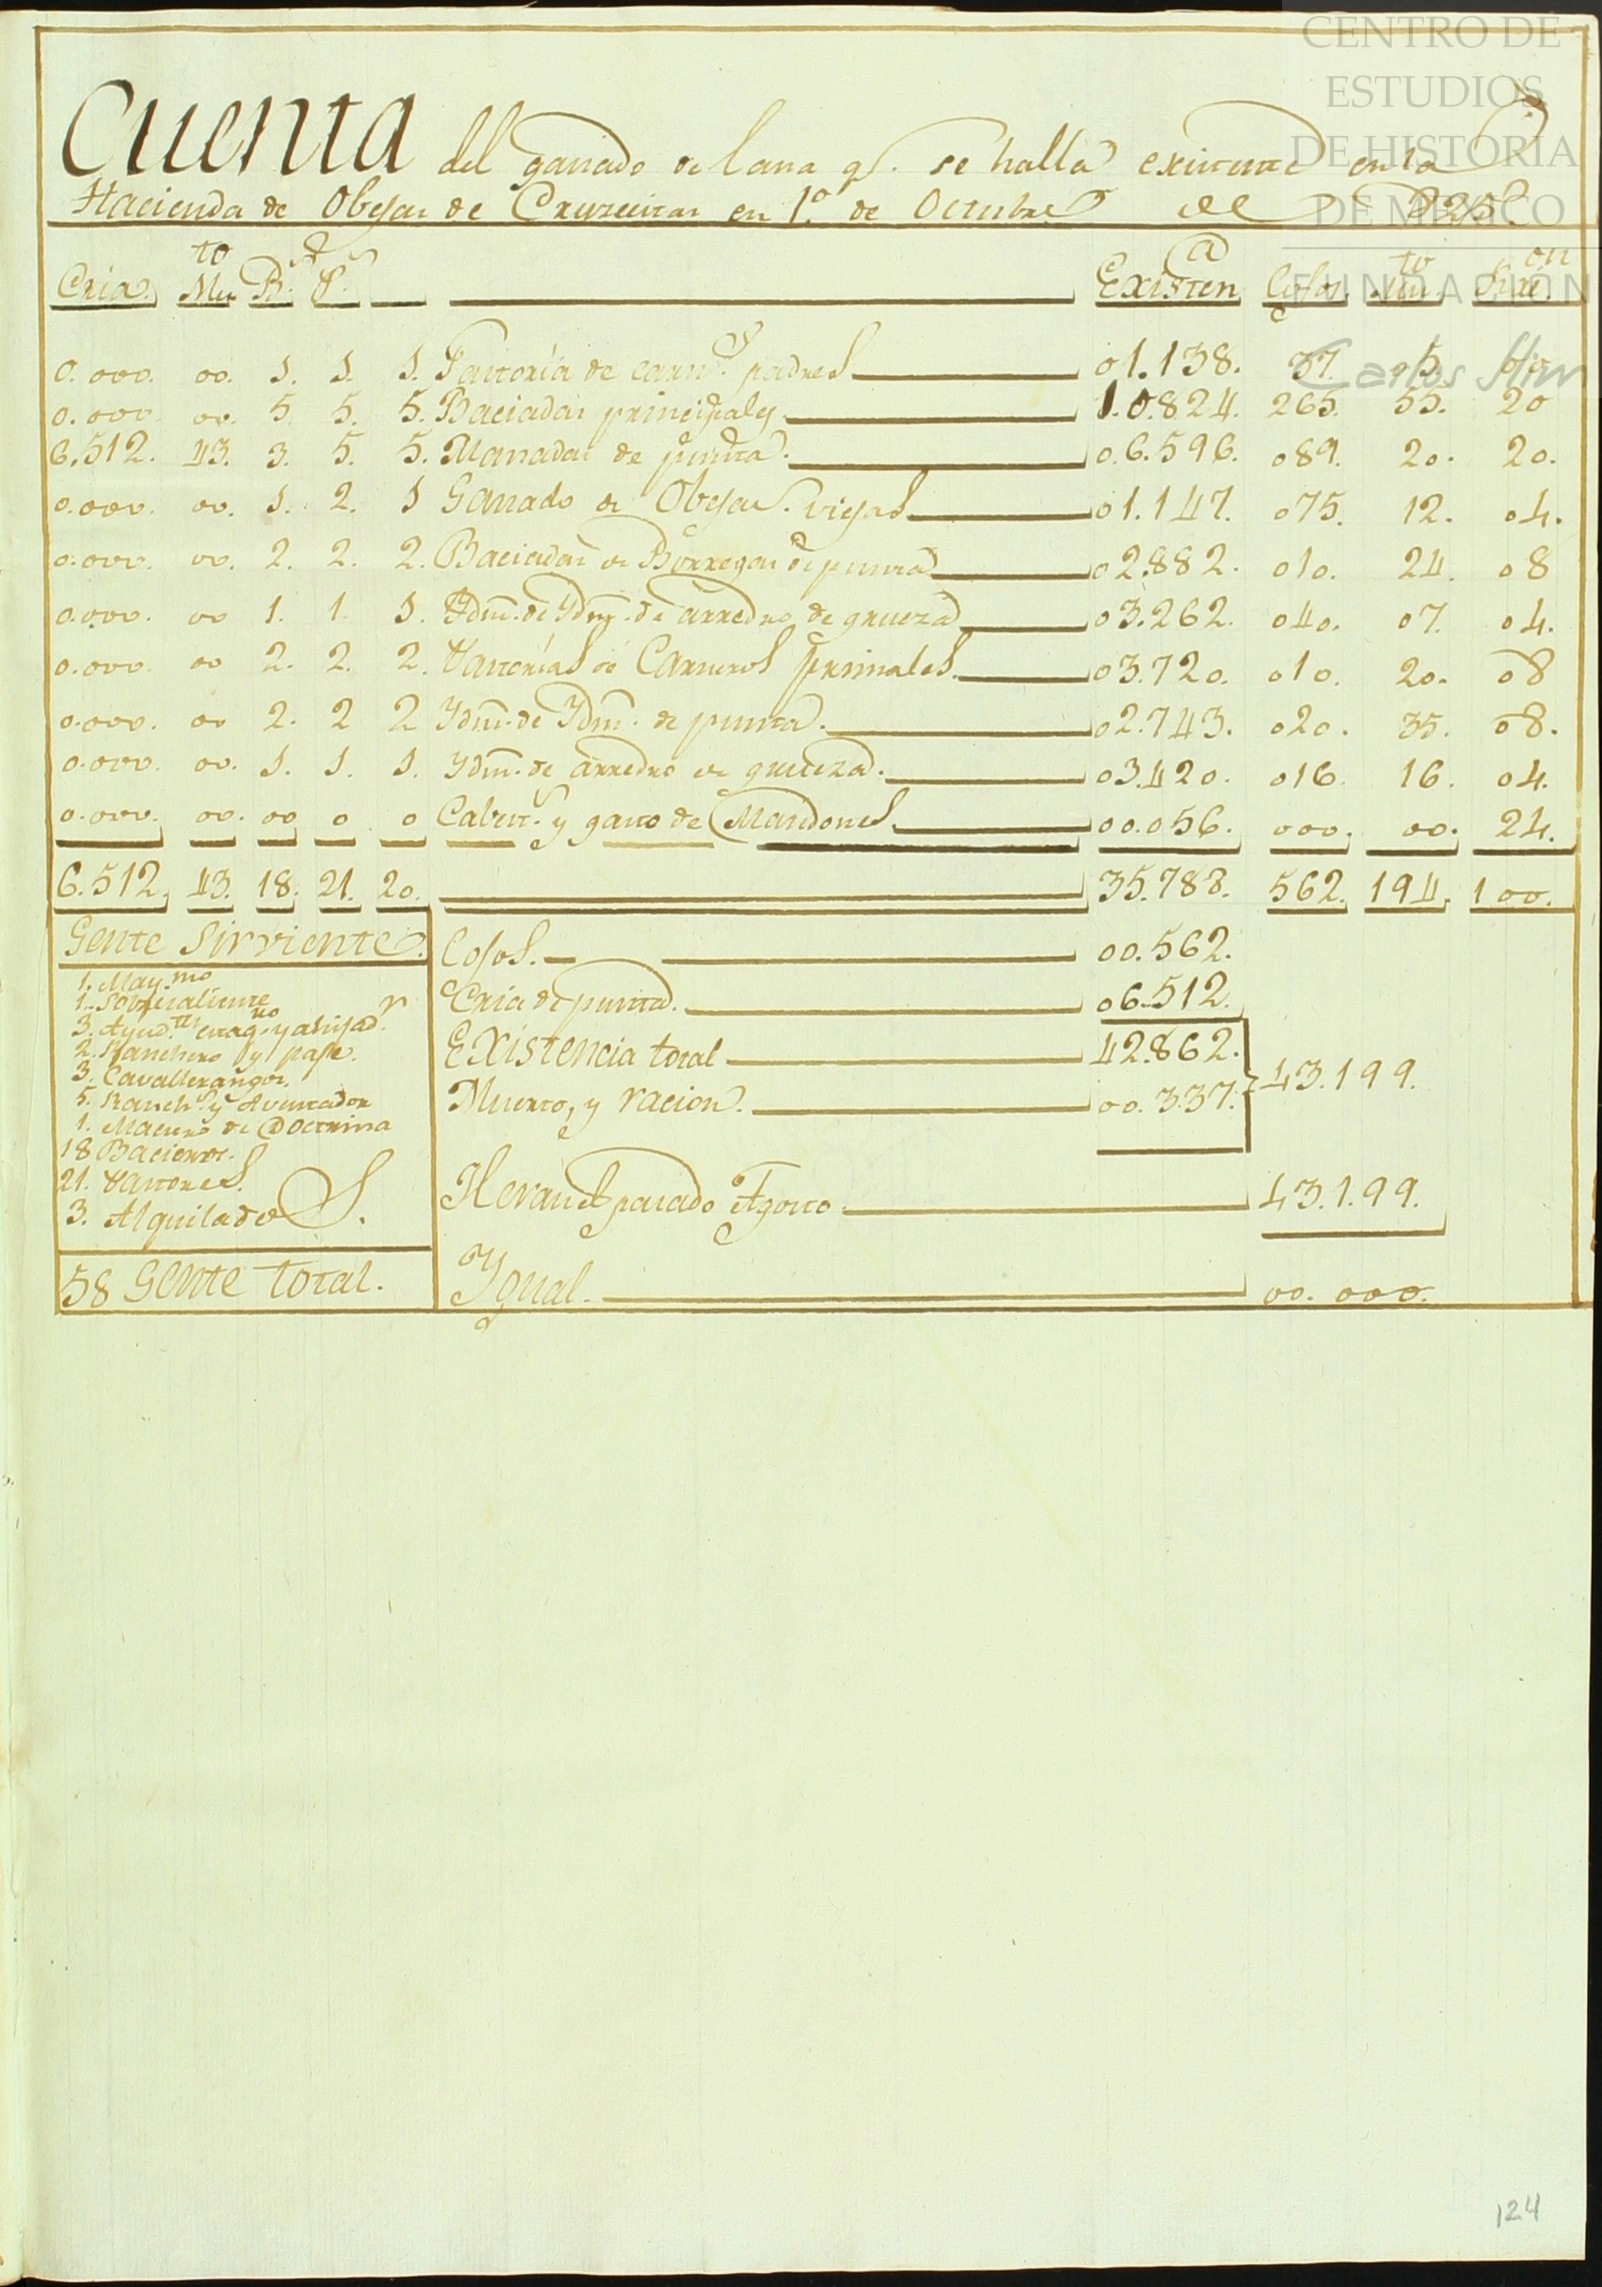 CENTRO DE
ESTUDIOS
DE HISTORIA
DE MÉXICO
FUNDACIÓN
Carlos Slim
Cuenta del ganado de lana q.e se halla existente en la
Hacienda de Obejas de Cruzecitas en 1.º de Octubre de
Cria. Mu.to B.s P.s Existen.a Cojos. Mu.to Raci.on
0.000. 00. 1. 1. 1. Pastoría de carn.s padres 01.138. 37. 05.
0.000. 00. 5. 5. 5. Baciadas principales 10.824. 265. 55. 20
6.512. 43. 3. 5. 5. Manadas de punta. 06.596. 089. 20. 20.
0.000. 00. 1. 2. 1 Ganado de Obejas viejas 01.147. 075. 12. 04.
0.000. 00. 2. 2. 2. Baciadas de Borregas de punta 02.882. 010. 24. 08
0.000. 00 1. 1. 1. Ydm. de Ydm. de arredro de grueza 03.262. 040. 07. 04.
0.000. 00 2. 2. 2. Pastorías de Carneros primales. 03.720. 010. 20. 08
0.000. 00 2. 2 2 Ydm. de Ydm. de punta. 02.743. 020. 35. 08.
0.000. 00. 1. 1. 1. Ydm. de arredro de grueza. 03.420. 016. 16. 04.
0.000. 00. 00 0 0 Cabrit.s y gasto de Mandones 00.056. 000. 00. 24.
6.512. 43. 18. 21. 20. 35.788. 562. 194. 100.
Gente Sirviente.
1. May.mo
1. Sobresaliente
3. Ayud.tes y ahijad.r
2. Ranchero y paje.
3. Cavallerangos.
5. Ranch.s y Aventador
1. Maestro de Doctrina
18 Bacieros.
21. Pastores.
3. Alquilados.
58 Gente total.
Cojos. 00.562.
Cria de punta. 06.512.
Existencia total 42.862.
Muerto, y racion. 00.337. 43.199.
Heran el pasado Agosto 43.199.
Ygual. 00.000.
124